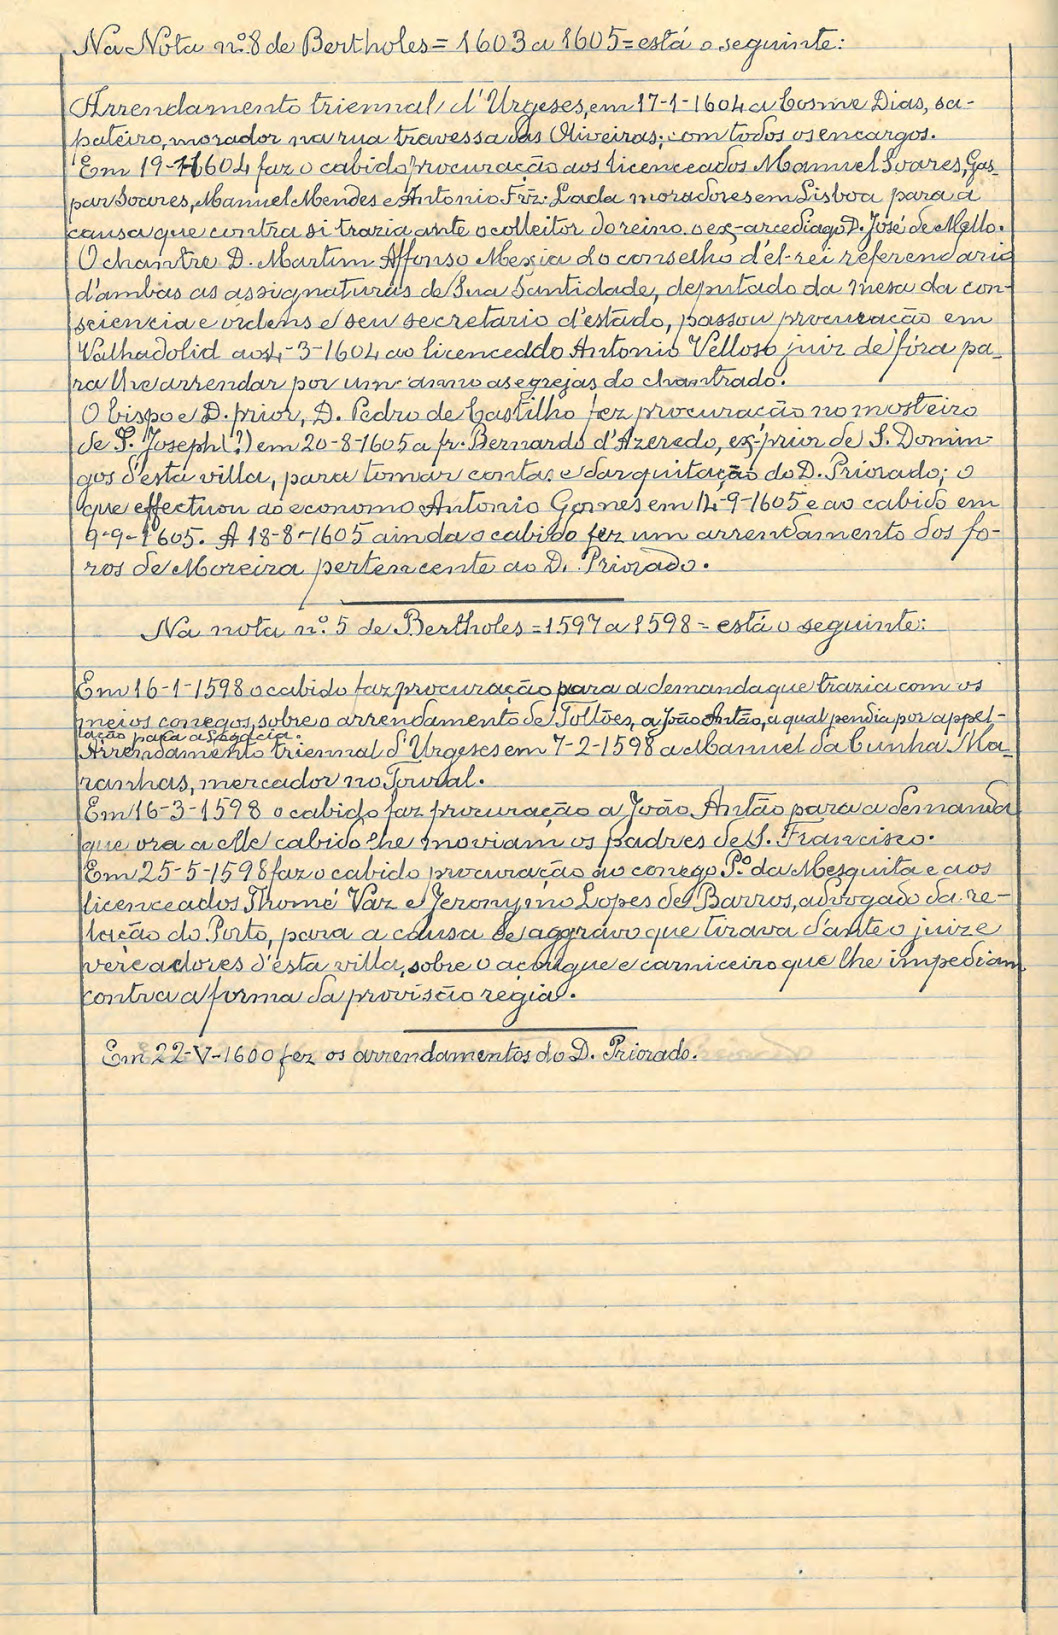 Na Nota nº. 8 de Bertholes = 1603 a 1605 = está o seguinte:
Arrendamento triennal d'Urgeses, em 17-1-1604 a Cosme Dias, sa-
pateiro, morador na rua travessa das Oliveiras; com todos os encargos.
Em 19-1-1604 faz o cabido procuração aos licenceados Manuel Soares, Gas-
par Soares, Manuel Mendes e Antonio Frz: Lada moradores em Lisboa para a
causa que contra si trazia ante o colleitor do reino o ex-arcediago D. José de Mello.
O chantre D. Martim Affonso Mexia do conselho d'el-rei referendario
d'ambas as assignaturas de Sua Santidade, deputado da mesa da con-
sciencia e ordens e seu secretario d'estado, passou procuração em
Valhadolid aos 4-3-1604 ao licenceddo Antonio Velloso juiz de fóra pa-
ra lhe arrendar por um anno as egrejas do chantrado.
O bispo e D. prior, D. Pedro de Castilho fez procuração no mosteiro
de S. Joseph (?) em 20-8-1605 a fr. Bernardo d'Azeredo, ex-prior de S. Domin-
gos d'esta villa, para tomar contas e dar quitação do D. Priorado; o
que effectuou ao economo Antonio Gomes em 14-9-1605 e ao cabido em
9-9-1605. A 18-8-1605 ainda o cabido fez um arrendamento dos fo-
ros de Moreira pertencente ao D. Priorado.
Na nota nº. 5 de Bertholes = 1597 a 1598 = está o seguinte:
Em 16-1-1598 o cabido faz procuração para a demanda que trazia com os
meios conegos, sobre o arrendamento de Tollões, a João Antão, a qual pendia por appel-
lação para a Legacia.
Arrendamento triennal d'Urgeses em 7-2-1598 a Manuel da Cunha Ma-
ranhas, mercador no Toural.
Em 16-3-1598 o cabido faz procuração a João Antão para a demanda
que ora a elle cabido lhe moviam os padres de S. Francisco.
Em 25-5-1598 faz o cabido procuração ao conego Pº. da Mesquita e aos
licenceados Thomé Vaz e Jeronymo Lopes de Barros, advogado da re-
lação do Porto, para a causa de aggravo que tirava d'ante o juiz e
vereadores d'esta villa, sobre o açougue e carniceiro que lhe impediam
contra a forma da provisão regia.
Em 22-V-1600 fez os arrendamentos do D. Priorado.